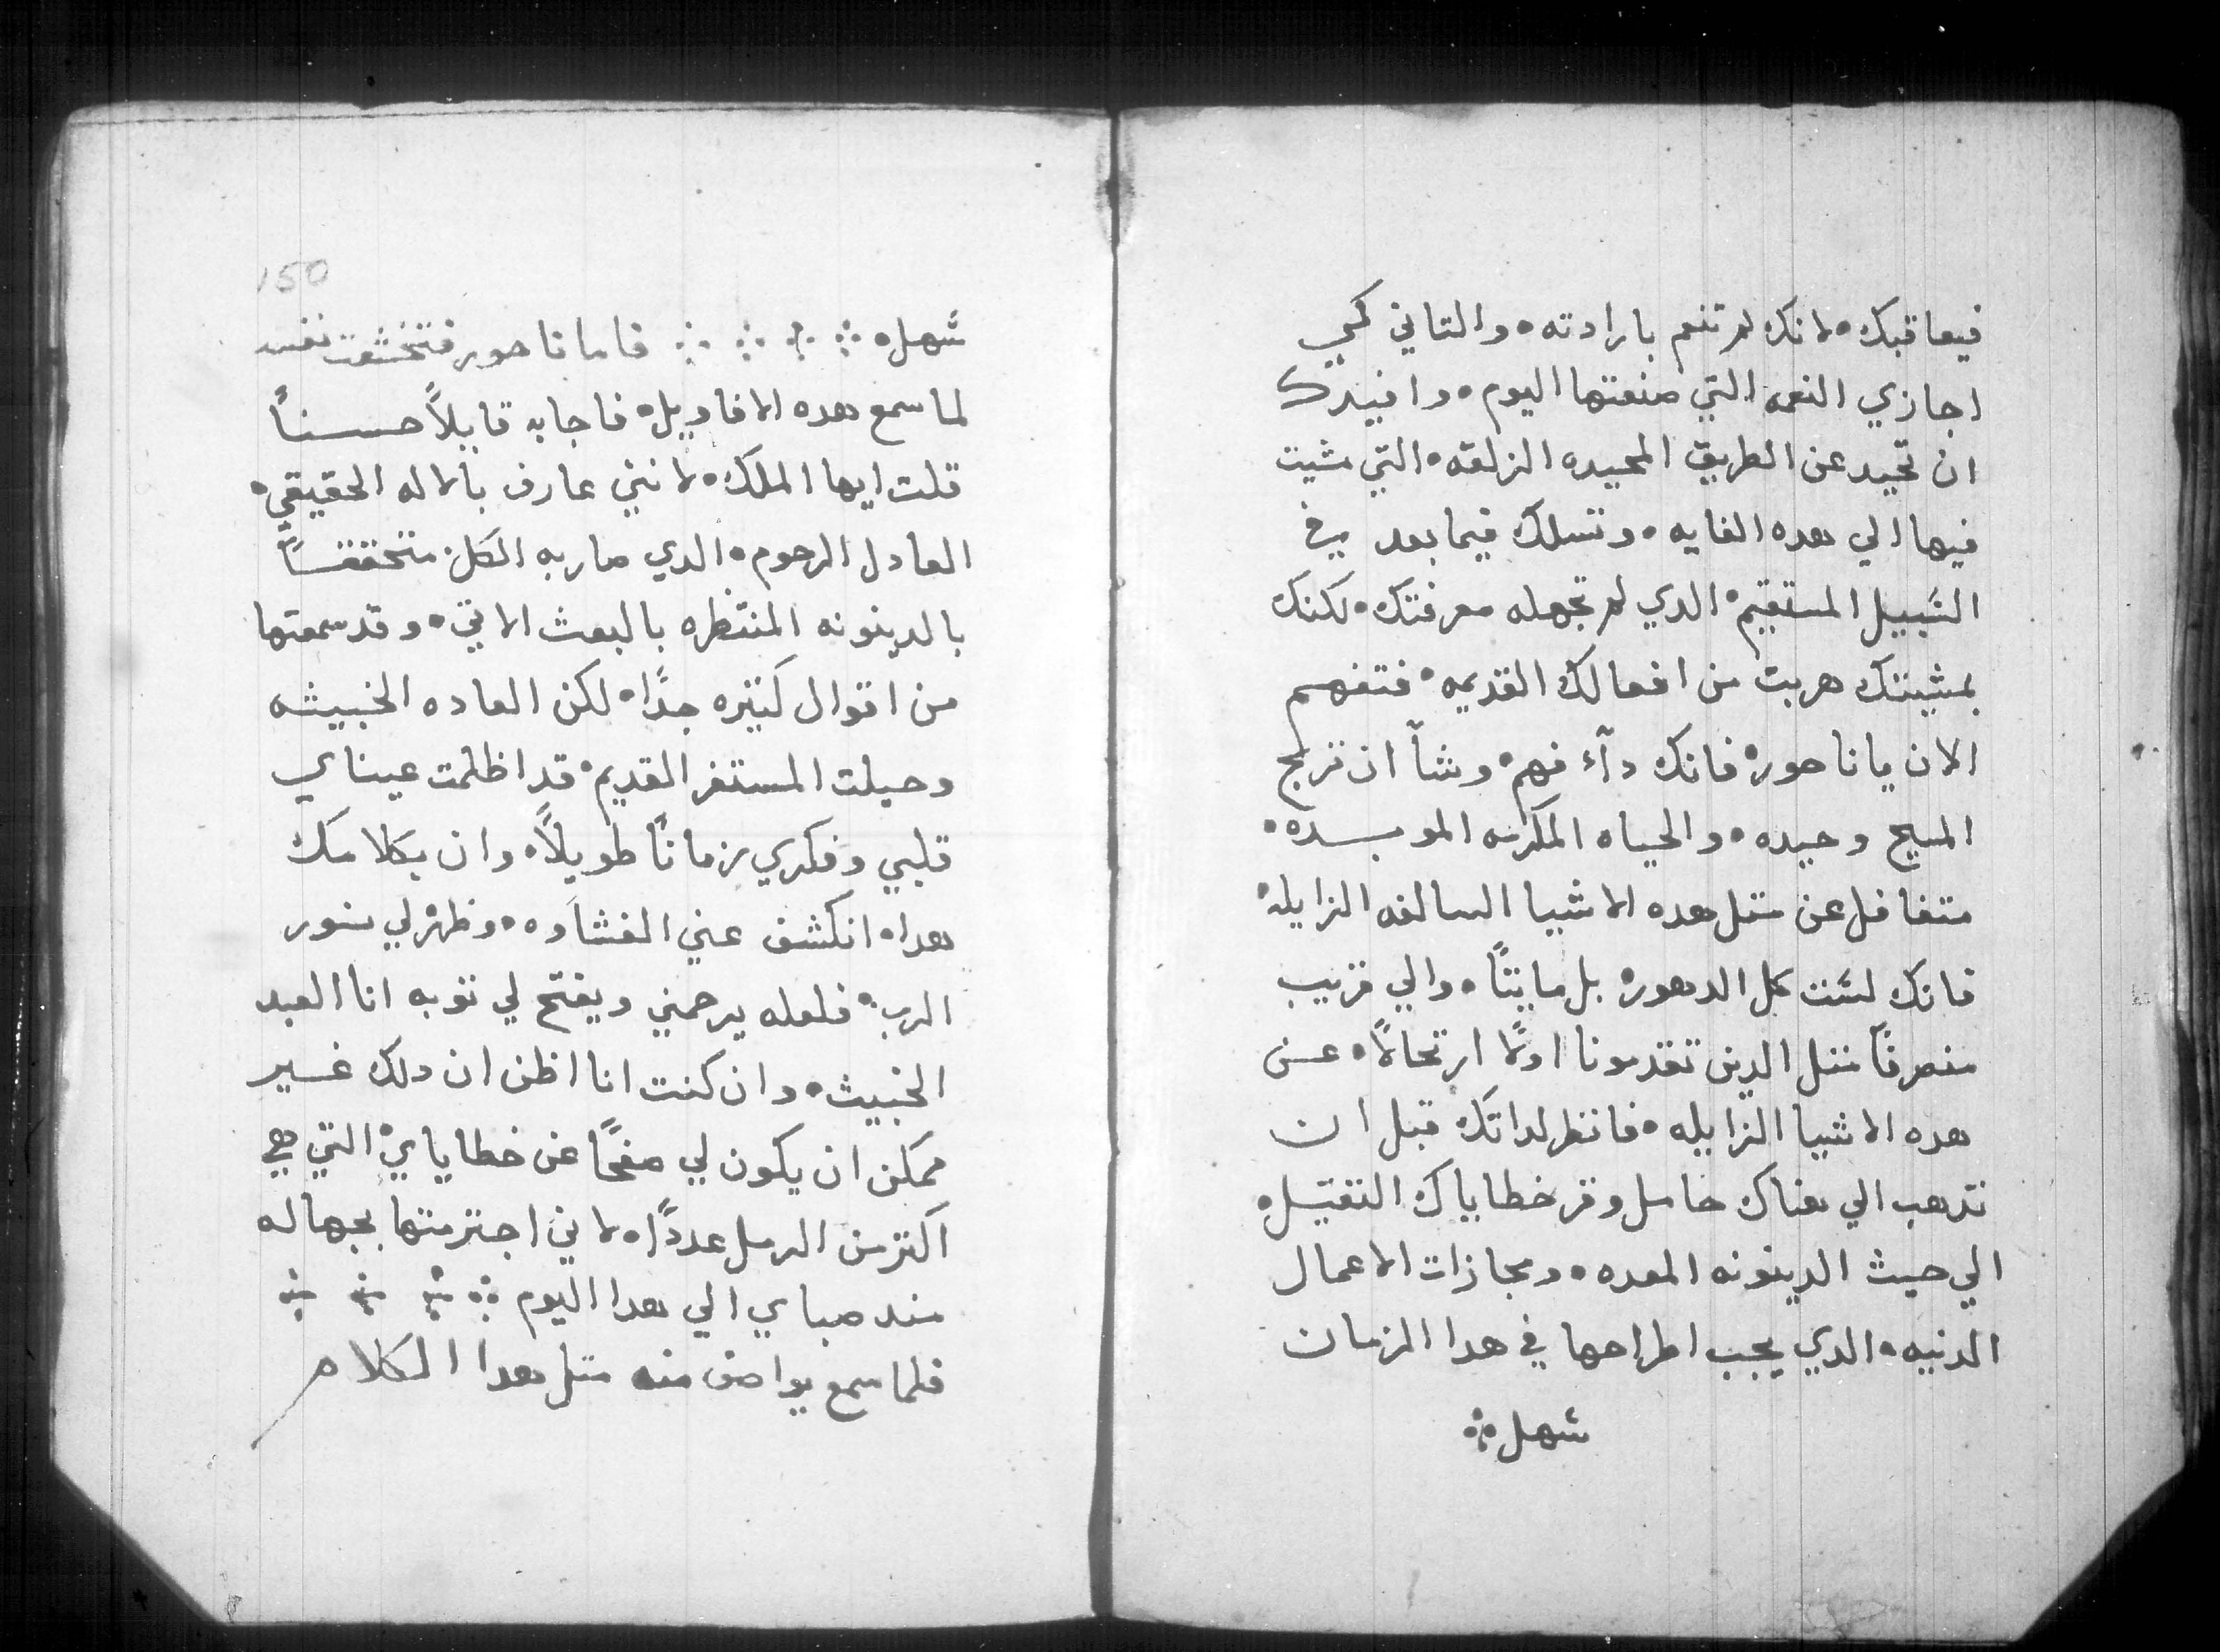 فيعاقبك ٠ لانك لم تنعم بارادته ٠ والتاني كمي
اجازي النعمه التي صنعتها اليوم ٠ وافيدك
ان تحيد عن الطريق المحيده الزلقه ٠ التي مشيت
فيها الي هده الغايه ٠ وتسلك فيما بعد في
السبيل المستقيم ٠ الدي لم تجهله معرفتك ٠ لكنك
بمشيتك هربت من افعالك القديمه ٠ فتفهم
الان يا ناحور ٠ فانك داء فهم ٠ وشاً ان تربح
المسيح وحيده ٠ والحياه المكرمه الموبده ٠
متغافل عن متل هده الاشيا السالفه الزايله ٠
فانك لست كل الدهور ٠ بل مايتاً ٠ والي قريب
منصرفاً متل الدين تقدمونا اولاً ارتحالاً ٠ عن
هده الاشيا الزايله ٠ فانظر لداتك قبل ان
تدهب الي هناك حامل وقر خطاياك التقيله
الي حيث الدينونه المعده ٠ ومجازات الاعمال
الدنيه ٠ الدي يجب اطراحها في هدا الزمان
سهل
150
سهله فاما ناحور فتخشعت نفسه
لما سمع هده الاقاويل ٠ فاجابه قايلاً حسناً
قلت ايها الملك ٠ لانني عارف بالاله الحقيقي ٠
العادل الرحوم ٠ الدي صار به الكل متحققاً
بالدينونه المنتظره بالبعث الاتي ٠ وقد سمعتها
من اقوال كتيره جداً ٠ لكن العاده الخبيثه
وحيلت المستفز القديم ٠ قد اظلمت عيناي
قلبي وفكري زماناً طويلاً ٠ وان بكلامك
هدا ٠ انكشف عني الغشاوه ٠ وظهر لي نور
الرب ٠ فلعله يرحمني ويفتح لي توبه انا العبد
الخبيث ٠ وان كنت انا اظن ان دلك غير
ممكن ان يكون لي صفحاً عن خطاياي ٠ التي هي
اكتر من الرمل عدداً ٠ لاني اجترمتها بجهاله
مند صباي الي هدا اليوم
فلما سمع يواصف منه متل هدا الكلام